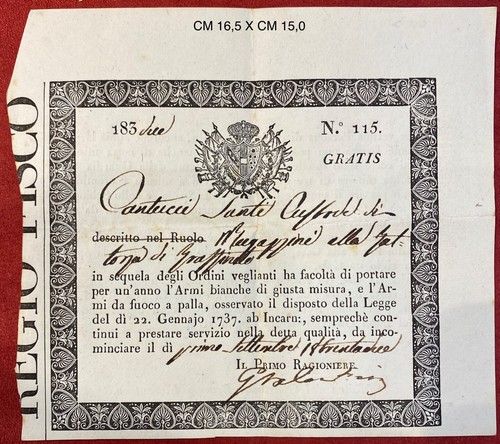 CM 16,5 X CM 15,0
REGIO FISCO
183 due
N.° 115.
GRATIS
Cantucci Santi Custode di
descritto nel Ruolo Magazzini alla
di
in sequela degli Ordini veglianti ha facoltà di portare
per un'anno l'Armi bianche di giusta misura, e l'Ar-
mi da fuoco a palla, osservato il disposto della Legge
del dì 22. Gennajo 1737. ab Incarn:, semprechè conti-
nui a prestare servizio nella detta qualità, da inco-
minciare il dì primo Settembre 18trentadue
IL PRIMO RAGIONIERE